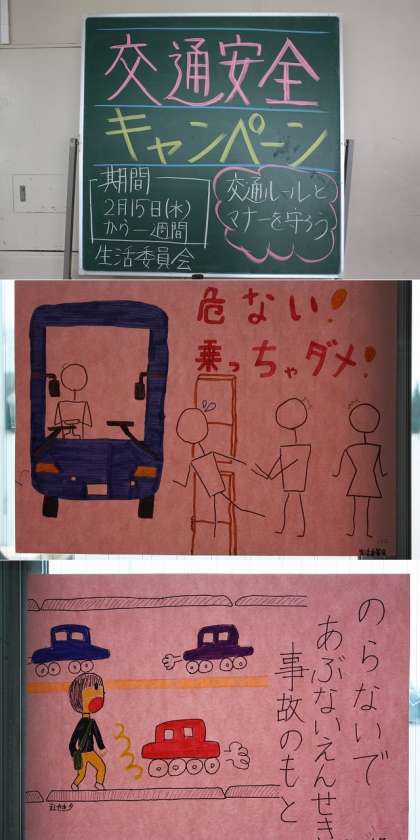 交通安全
キャンペーン
期間
2月15日(水)
から一週間
生活委員会
交通ルールと
マナーを守ろう
危ない!
乗っちゃダメ!
のらないで
あぶないえんせき
事故のもと